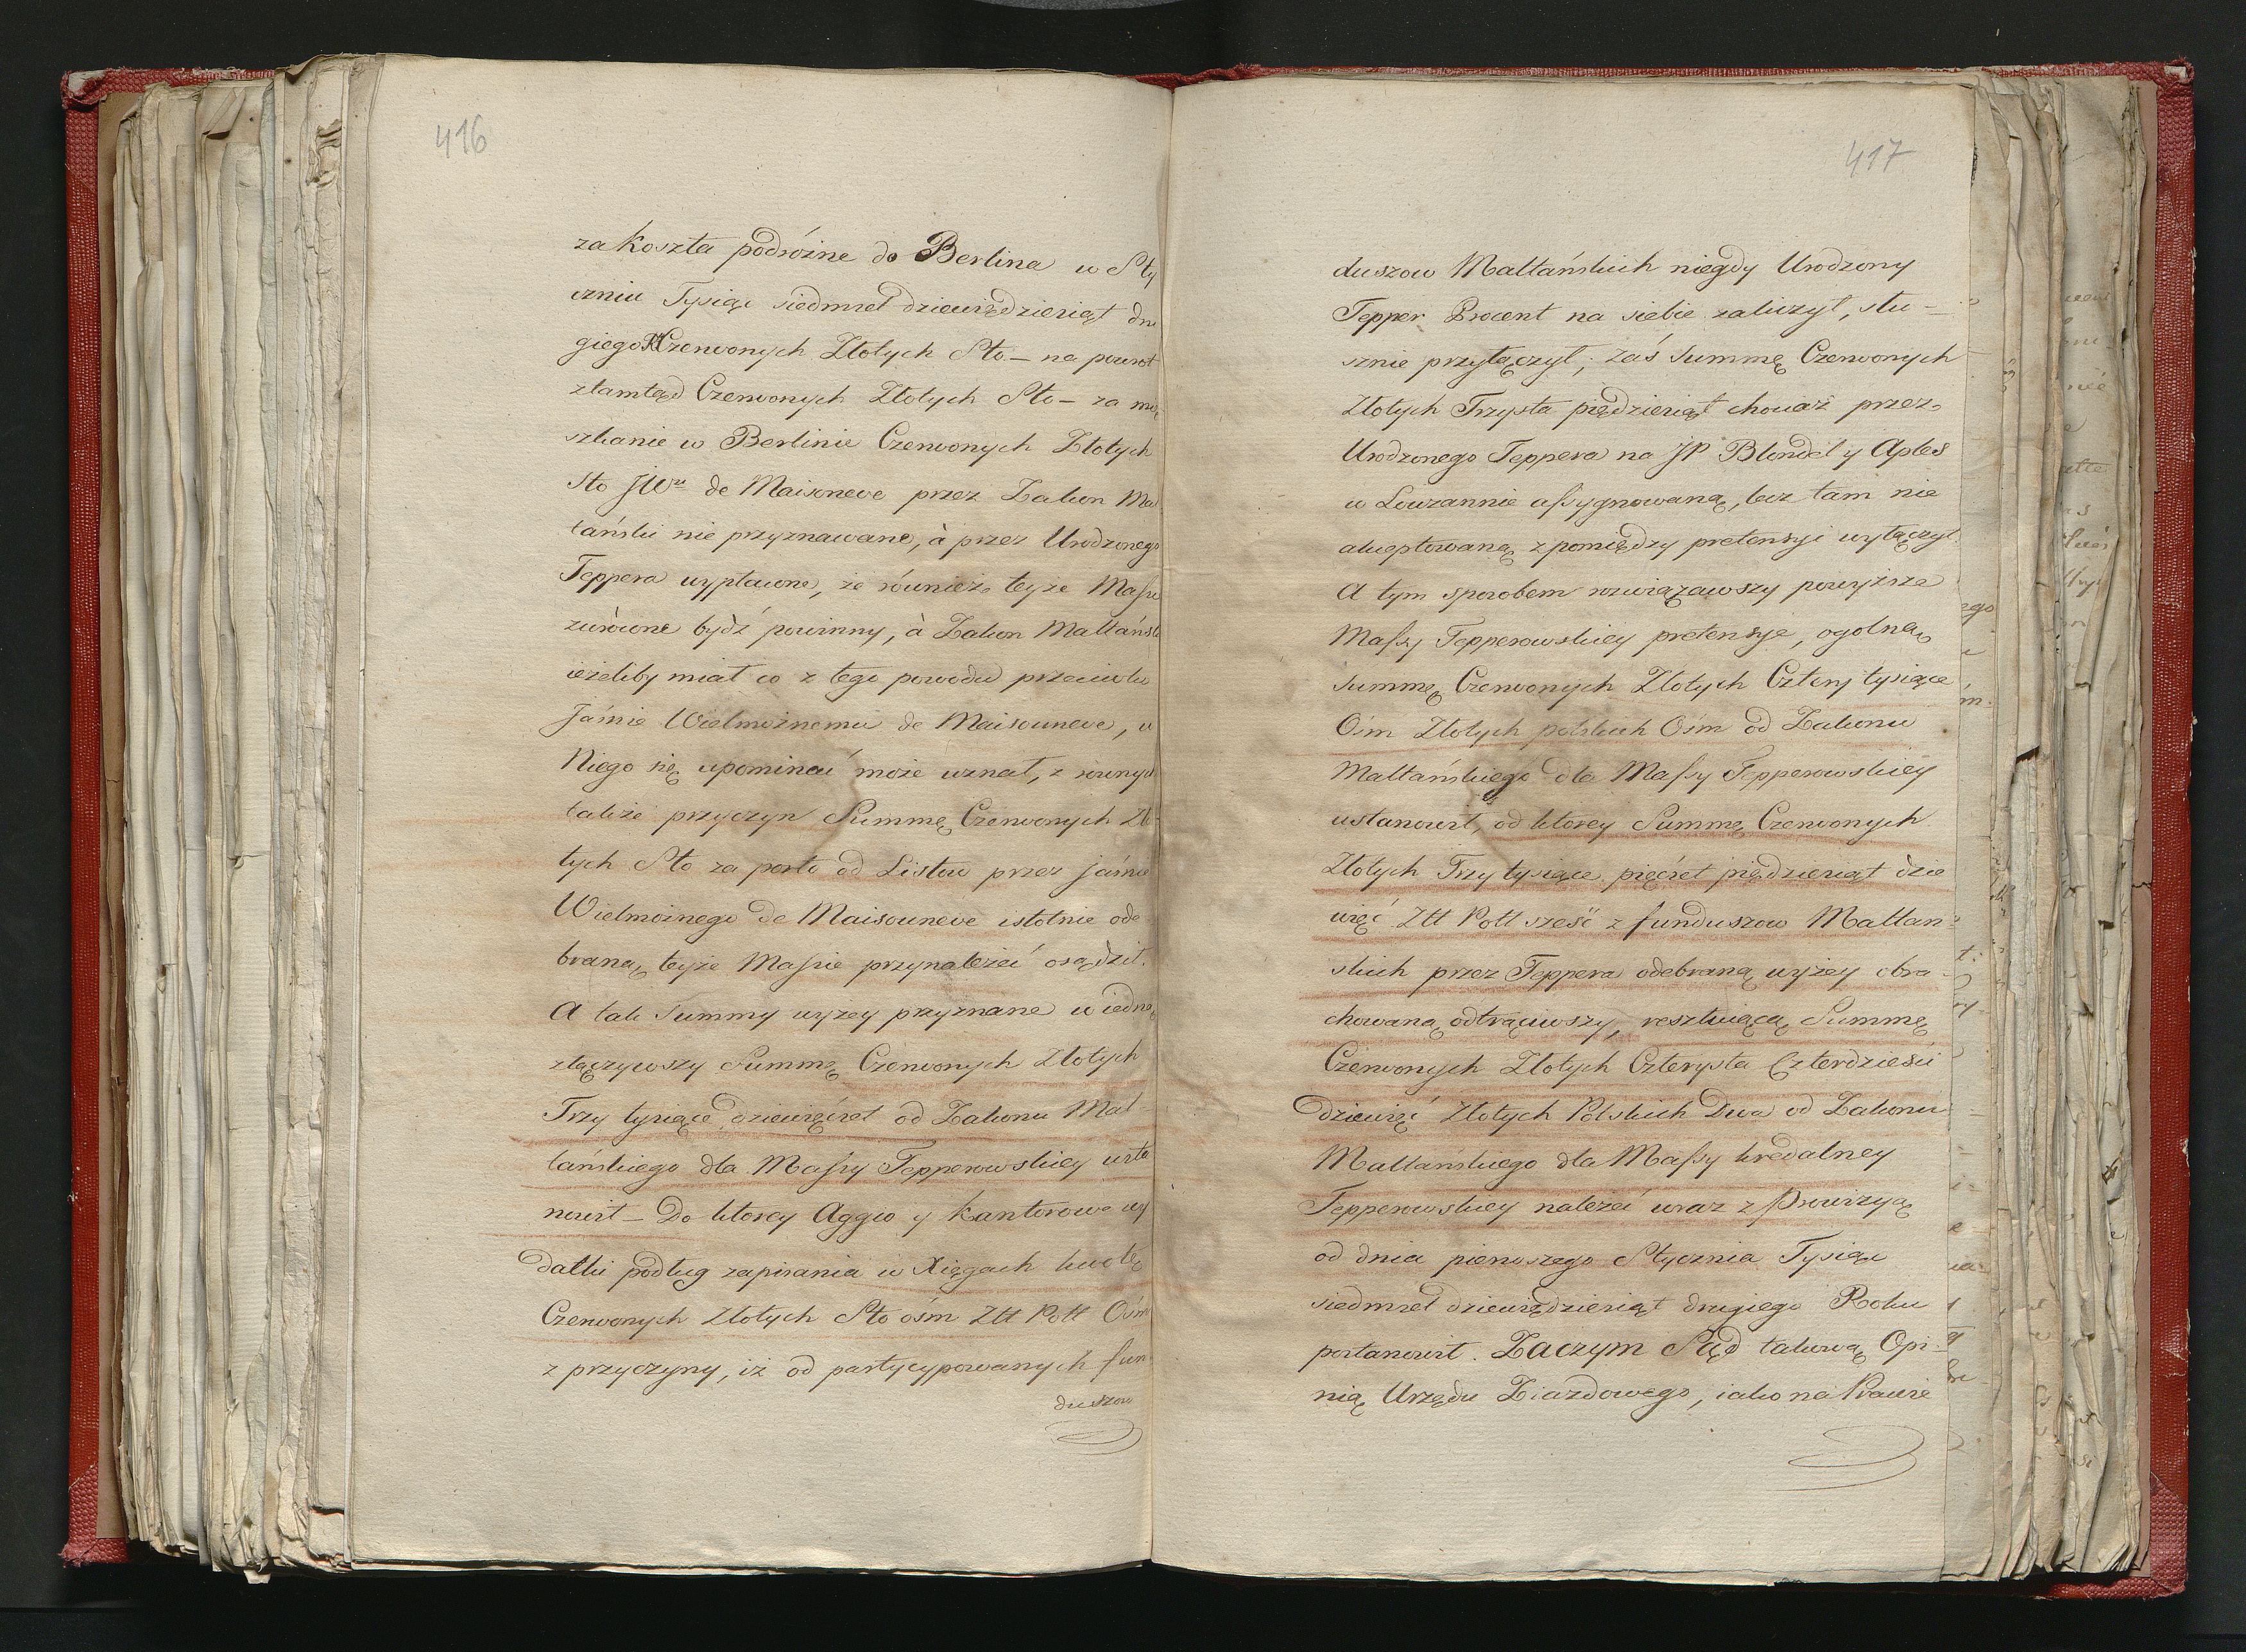 416
za Koszta podróżne do Berlina w Sty
czniu Tysiąc siedmset dziewięddziesiąt dru
giego Czerwonych Złotych Sto — na powrot
ztamtąd Czerwonych Złotych Sto — za mię
szkanie w Berlinie Czerwonych Złotych
Sto JW de Maisoneve przez Zakon Mal
tański nie przyznawane, à przez Urodzonego
Teppera wypłacone, że również teyże Massie
zwrócone bydź powinny, à Zakon Maltański
ieżeliby miał co z tego powodu przeciwko
Jaśnie Wielmożnemu de Maisouneve, u
Niego się upominać może uznał, z równych
także przyczyn Summę Czerwonych Zło-
tych Sto za porto od Listow przez jaśnie
Wielmożnego de Maisouneve istotnie ode
braną teyże Massie przynależeć osądził.
A tak Summy wyżey przyznane w iedną
złączywszy Summę Czerwonych Złotych
Trzy tysiące dziewięćset od Zakonu Mal-
tańskiego dla Massy Tepperowskiey usta
nowił — Do ktorey Aggio y Kantorowe wy
datki podług zapisania w Xięgach kwotę
Czerwonych Złotych Sto ośm Złł Poll Ośm
z przyczyny, iż od partycypowanych fun
duszow
417
duszow Maltańskich niegdy Urodzony
Tepper Procent na siebie zaliczył, słu-
sznie przyłączył; zaś Summę Czerwonych
Złotych Trzysta pięddziesiąt chociaż przez
Urodzonego Teppera na JP Blondel y Aples
w Lowzannie assygnowaną, lecz tam nie
akceptowaną z pomiędzy pretensyi wyłączył
A tym sposobem rozwiązawszy powyższe
Massy Tepperowskiey pretensye, ogolną
Summę Czerwonych Złotych Cztery tysiące
Ośm Złotych polskich Ośm od Zakonu
Maltańskiego dla Massy Tepperowskiey
ustanowił, od ktorey Summę Czerwonych
Złotych Trzy tysiące pięćset pięddziesiąt dzie
więć Złł Poll sześć z funduszow Maltań-
skich przez Teppera odebraną wyżey obra-
chowaną odtrąciwszy, resztuiącą Summę
Czerwonych Złotych Czterysta Czterdzieści
dziewięć Złotych Polskich Dwa od Zakonu
Maltańskiego dla Massy kredalney
Tepperowskiey należeć wraz z Prowizyą
od dnia pierwszego Stycznia Tysiąc
siedmset dziewięddziesiąt drugiego Roku
postanowił. Zaczym Sąd takową Opi-
nią Urzędu Ziazdowego, iako na Prawie